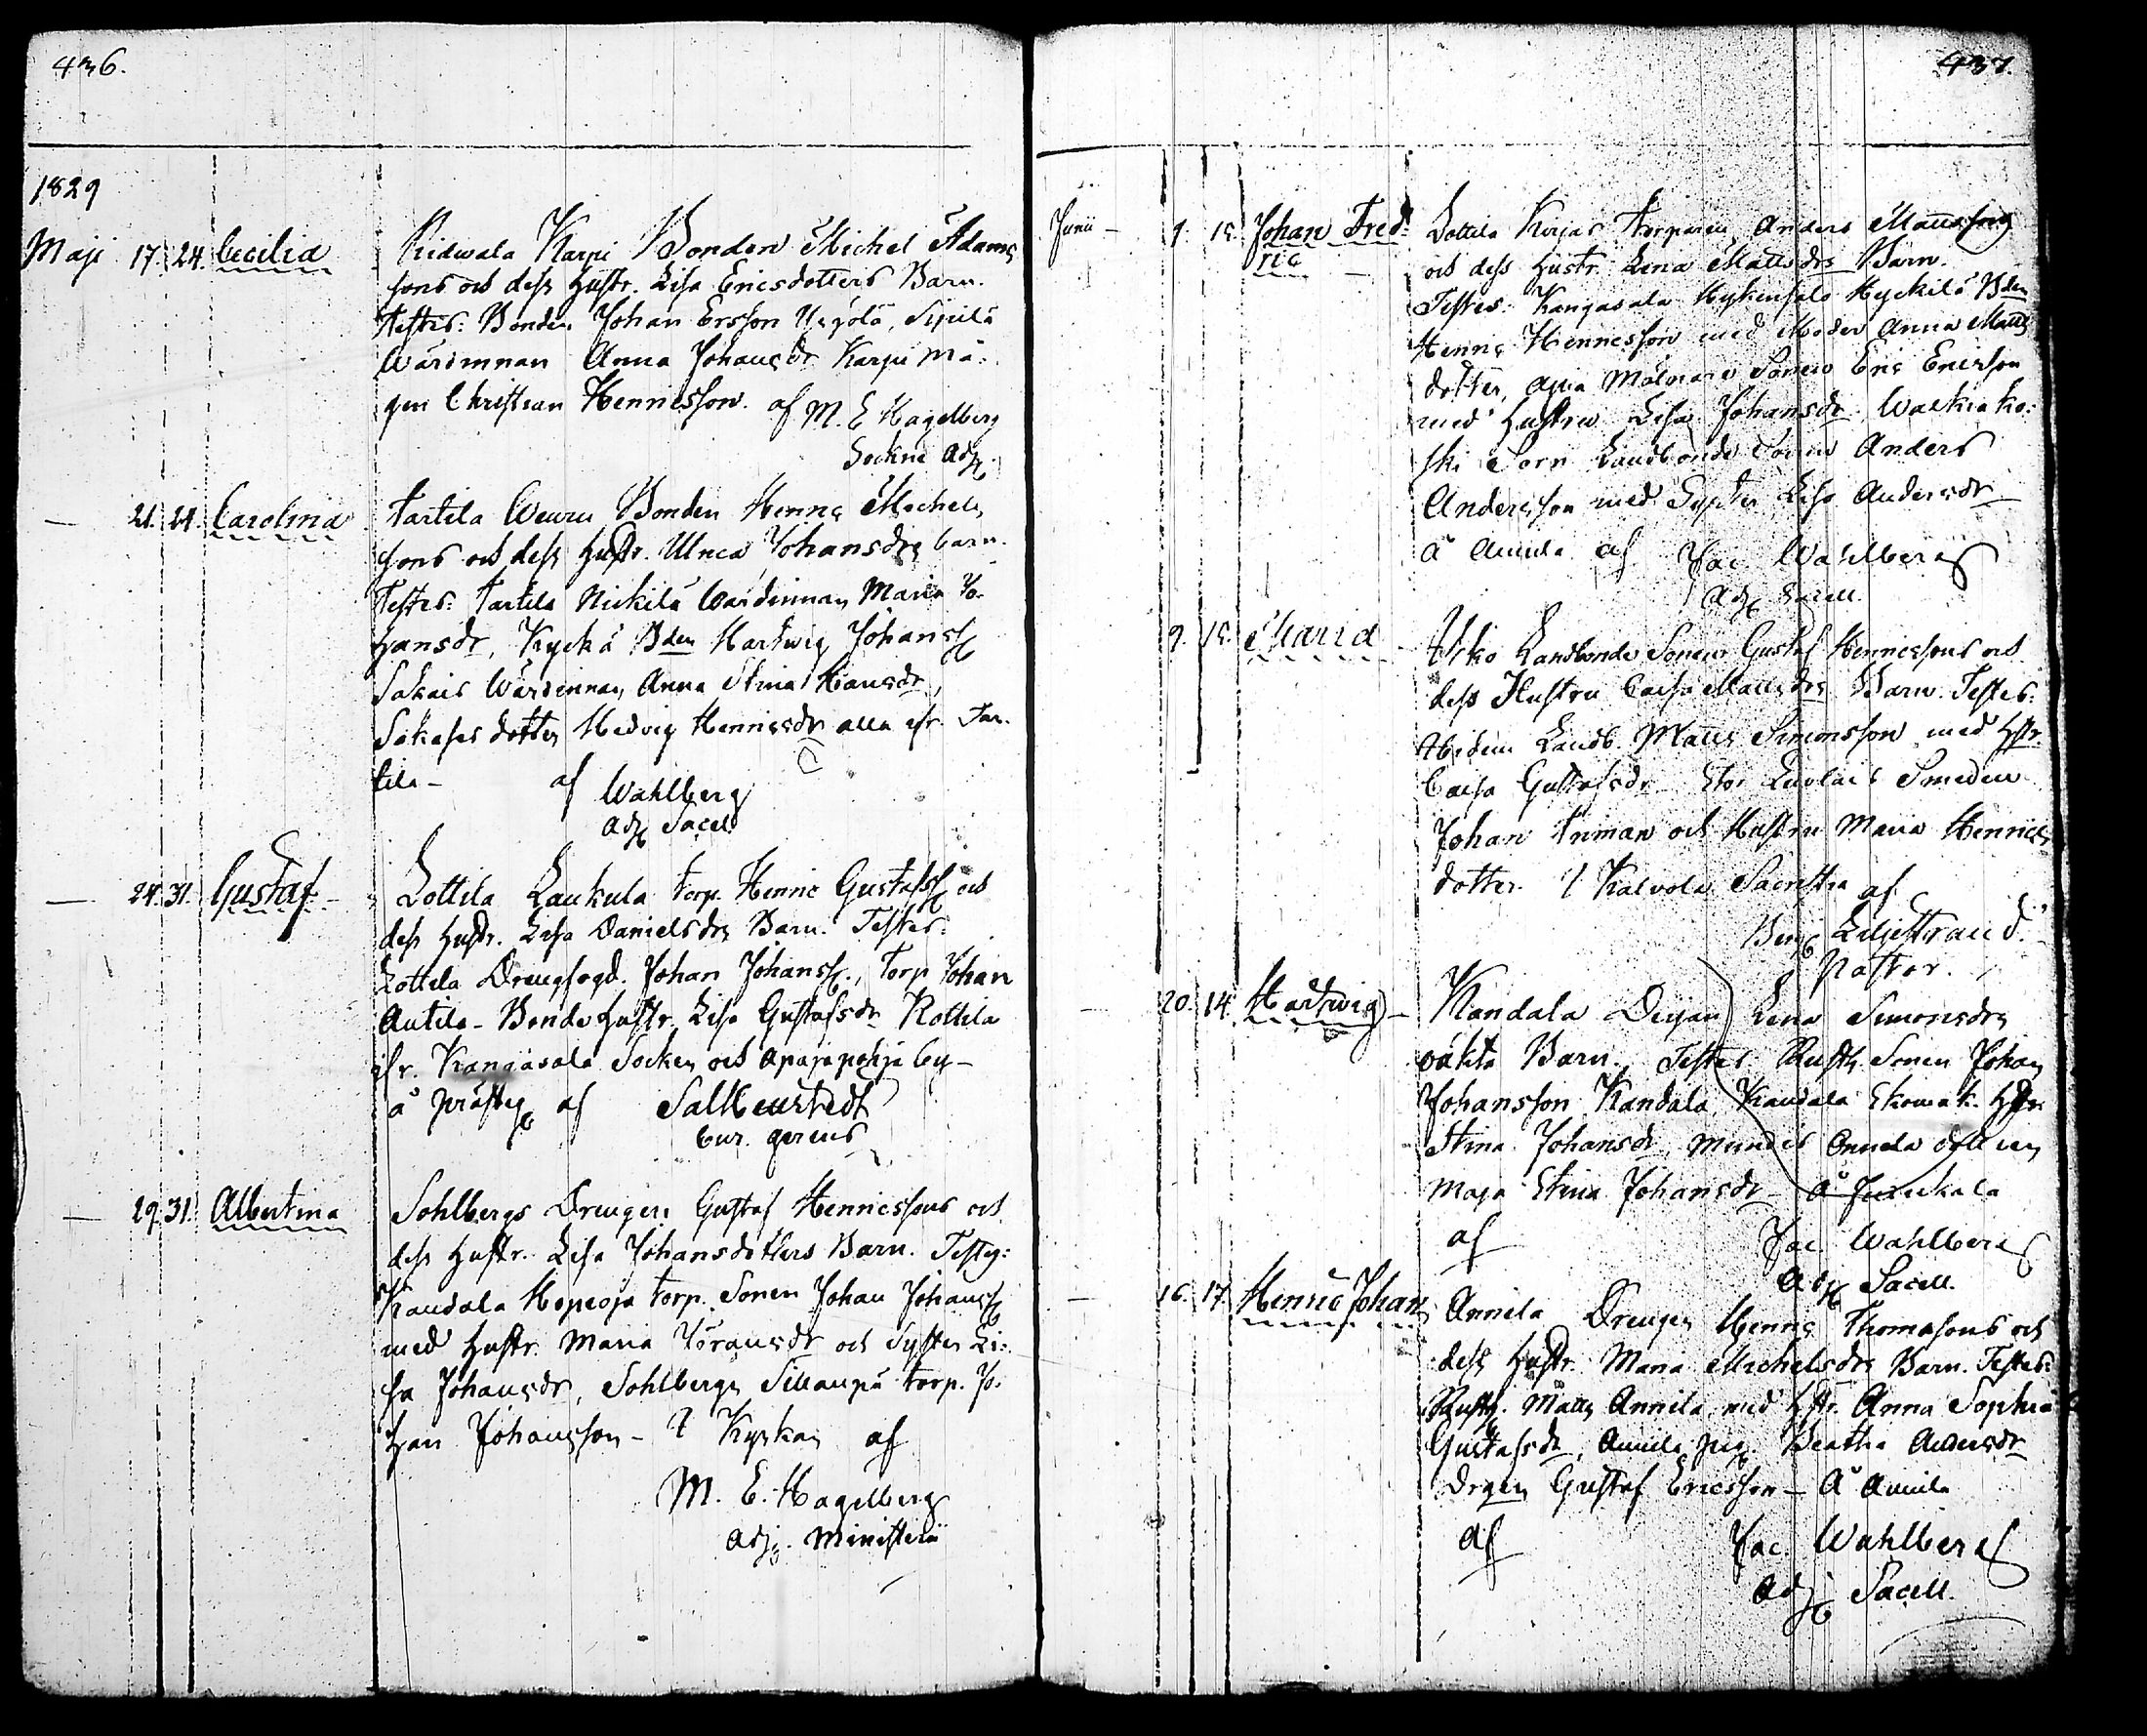 436.
1829
Maji 17. 24. Cecilia Ridwala Karpi Bonden Michel Adams
sons och dess Hustr. Lisa Ericsdotters Barn.
Testes: Bonden Johan Ersson Sipilä
Wärdinnan Anna Johansdr Karpi må-
gen Christian Henricsson. af M. E Hagelberg
Sockne Adj.
— 21. 24. Carolina Tartila Bonden Henric Michels
sons och dess Hustr. Ulrica Johansdrs barn.
Testes: Tartila Nickilä Wärdinnan Maria Jo-
hansdr, Bden Hartwig Johanss.
Sakais Wärdinnan Anna Stina Hansdr,
dotter Hedvig Henricsdr alla ifr. Tar-
tila - af Wahlberg
Adj. Sacell
— 24. 31. Gustaf Lottila Laukula torp. Henric Gustafss. och
dess Hustr. Lisa Danielsdrs Barn. Testes:
Lottila Drengfogd. Johan Johanss., Torp. Johan
Antila - Bonde Hustr. Lisa Gustafsdr Rottila
ifr. Kangasala Socken och Apajapohja by -
å Prästg. af
Cur. gerens
— 29. 31. Albertina Sohlbergs Drengen Gustaf Henricssons och
dess Hustr. Lisa Johansdotters Barn. Testes:
Kandala Hopeoja torp. Sonen Johan Johanss.
med Hustr. Maria Göransdr och Syster Li-
sa Johansdr, Sohlbergs Sillanpä torp. Jo-
han Johansson - I Kyrkan af
M. E. Hagelberg
Adj. Ministerii
437.
Junii — 15. Johan Fred- Lottila Torparen Anders Mattssons
ric och dess Hustr. Lena Mattsdrs Barn.
Testes: Kangasala Bden
Henric Henricsson med Moder Anna Matts
dotter, Sonen Eric Ericsson
med Hustru Lisa Johansdr, Walkiako-
ski Landbonde Sonen Anders
Andersson med Syster Lisa Andersdr
å Annila af Jac. Wahlberg
Adj. Sacell.
9. 15. Maria Landbonde Sonen Gustaf Henricssons och
dess Hustru Caisa Mattsdrs Barn. Testes:
Landb. Matts Simonsson med Hstr.
Caisa Gustafsdr Smeden
Johan Inman och Hustru Maria Henrics
dotter. I Kalvola Sacristia af
Beng. Liljestrand.
Pastor.
— 14. Hartwig — Kandala Lena Simonsdrs
oäkta Barn. Testes Rusth. Sonen Johan
Johansson Kandala, Kandala Skomak. Hstr.
Stina Johansdr, Annila
Maja Stina Johansdr — å Junkala
af Jac. Wahlberg
Adj. Sacell.
— 16. 17. Henric Johan Annila Drengen Henric Thomasons och
dess Hustr. Maria Michelsdrs Barn. Testes:
Rusth. Matts Annila med Hstr. Anna Sophia
Gustafsdr, Annila Pig. Beatha Andersdr
Drgen Gustaf Ericsson — å Annila
af Jac. Wahlberg
Adj. Sacell.